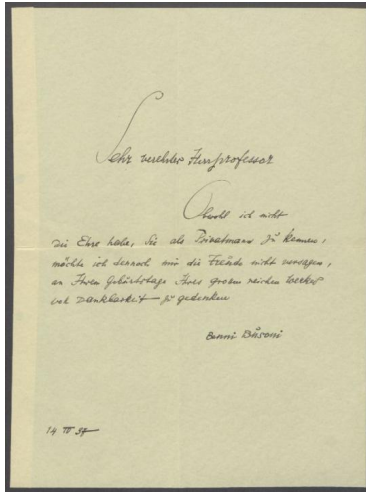 Sehr verehrter Herr Professor
Obwoll ich nicht
die Ehre habe, Sie als Privatmann zu kennen,
möchte ich dennoch mir die Freude nicht versagen,
an Ihrem Geburtstage Ihres grossen reichen Werkes
voll Dankbarkeit – zu gedenken
Busoni
14